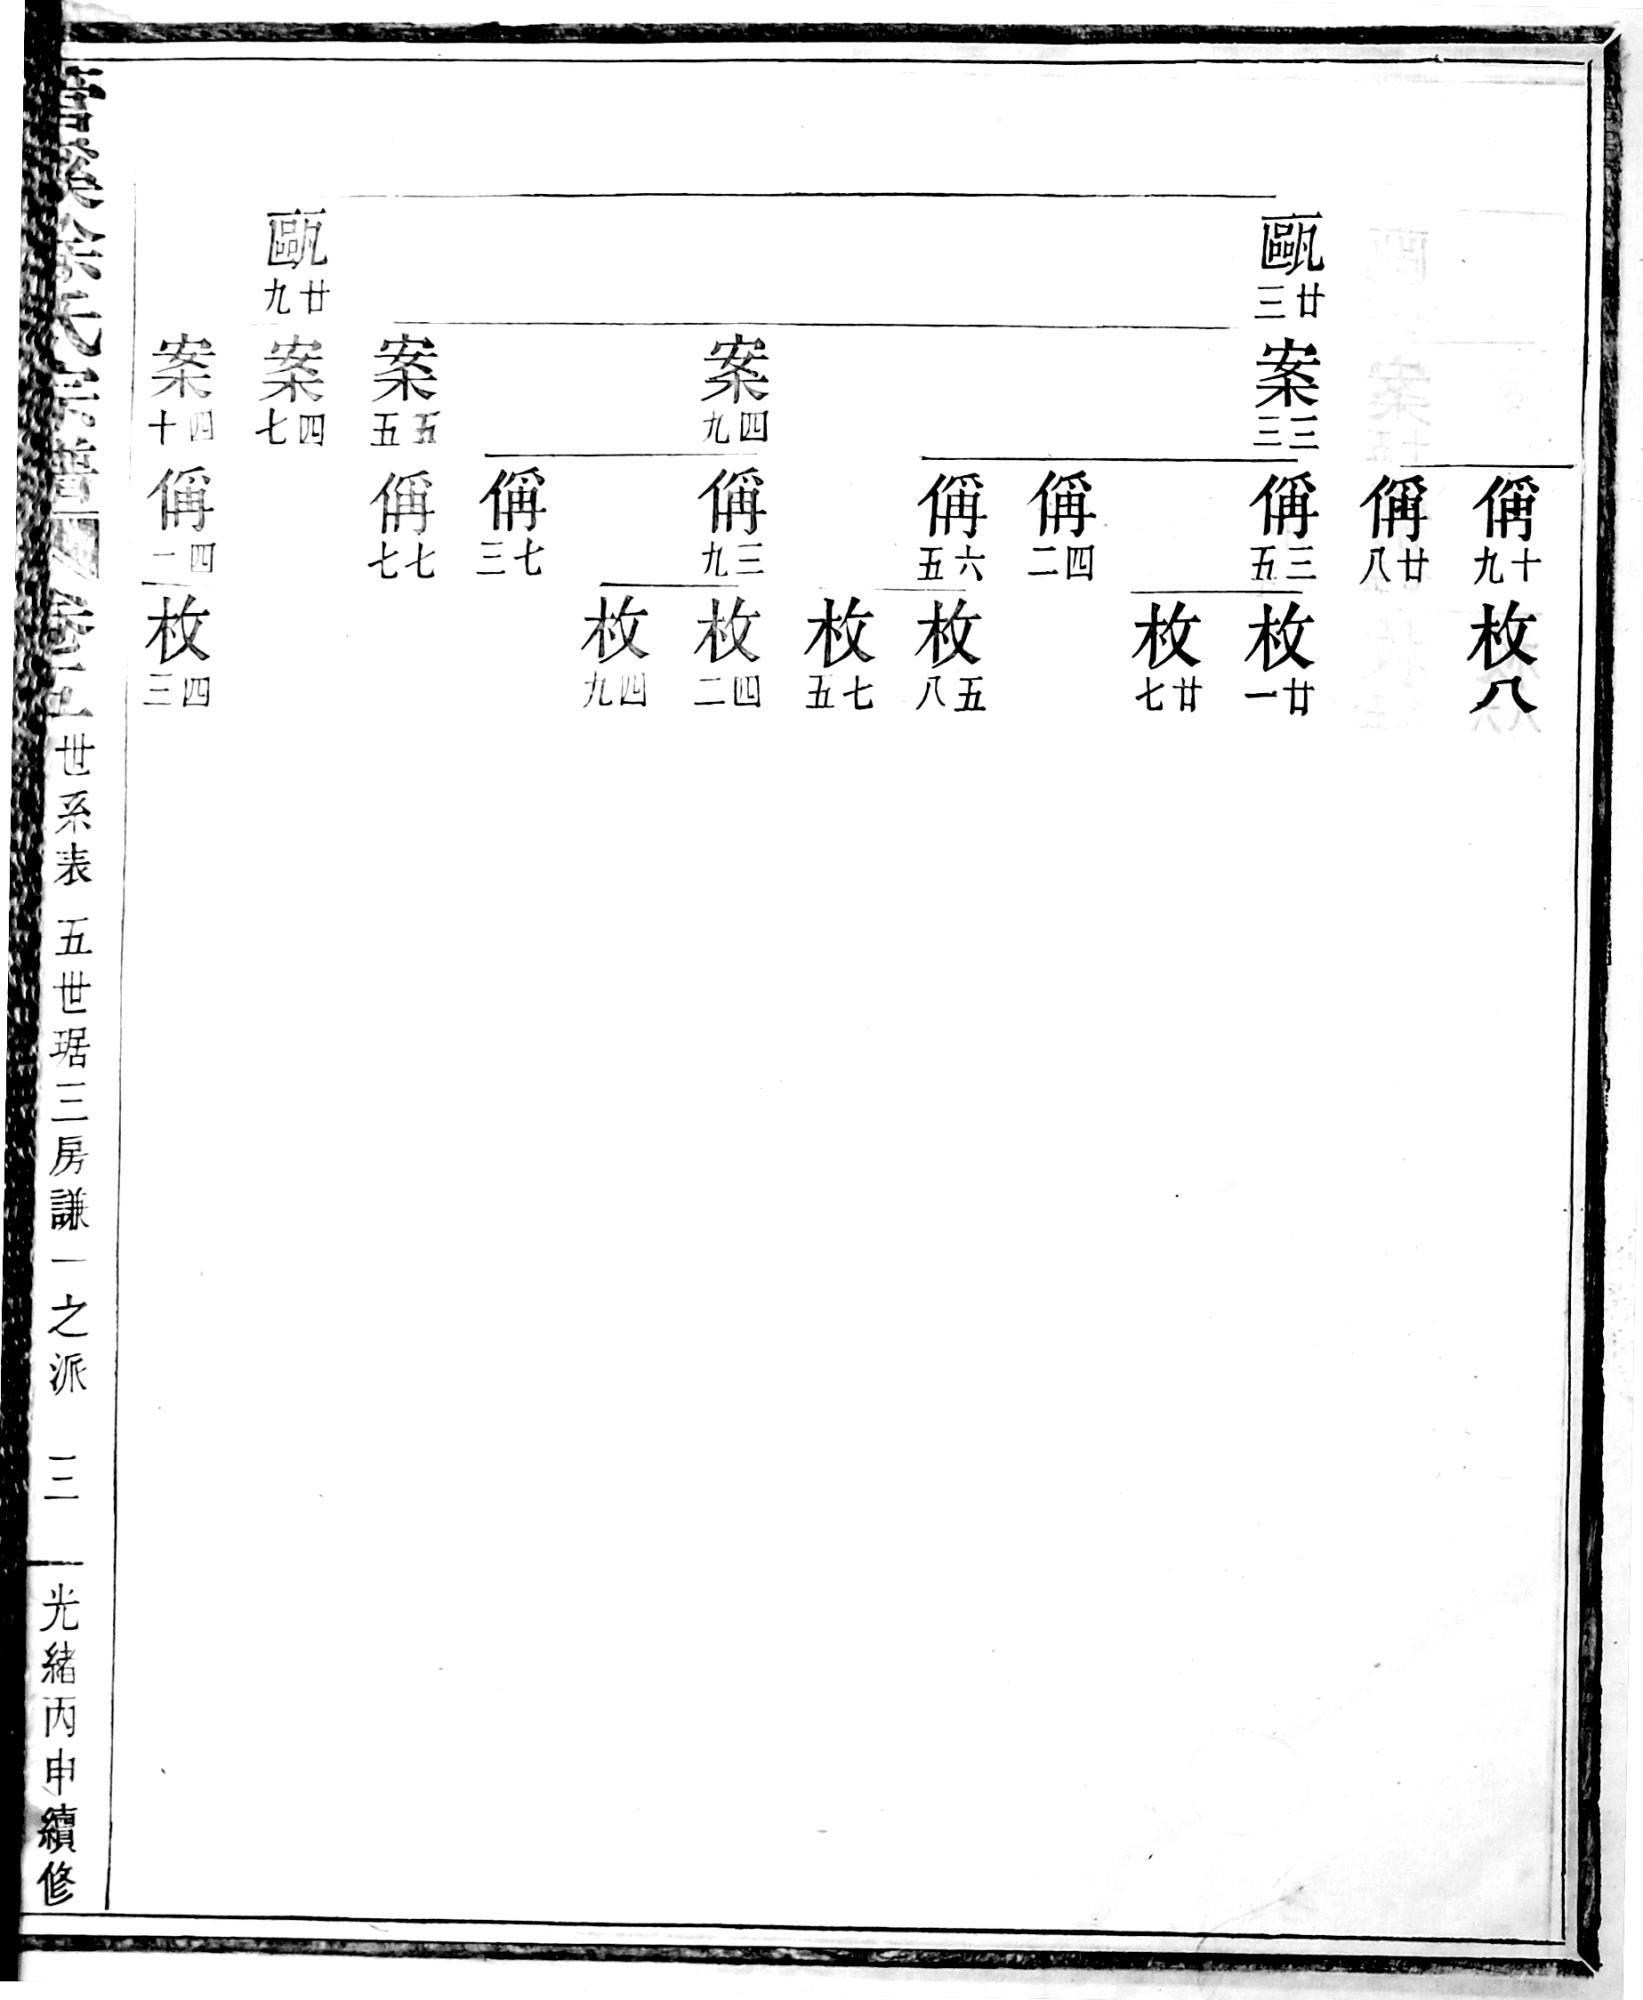 偁十九 枚八
偁廿八
甌廿三 案三三 偁三五 枚廿一
枚廿七
偁四二
偁六五 枚五八
枚七五
案四九 偁三九 枚四二
枚四九
偁七三
案五五 偁七七
甌廿九 案四七
案四十 偁四二 枚四三
管溪徐氏宗譜 卷五 世系表 五世琚三房謙一之派 三 光緒丙申續修